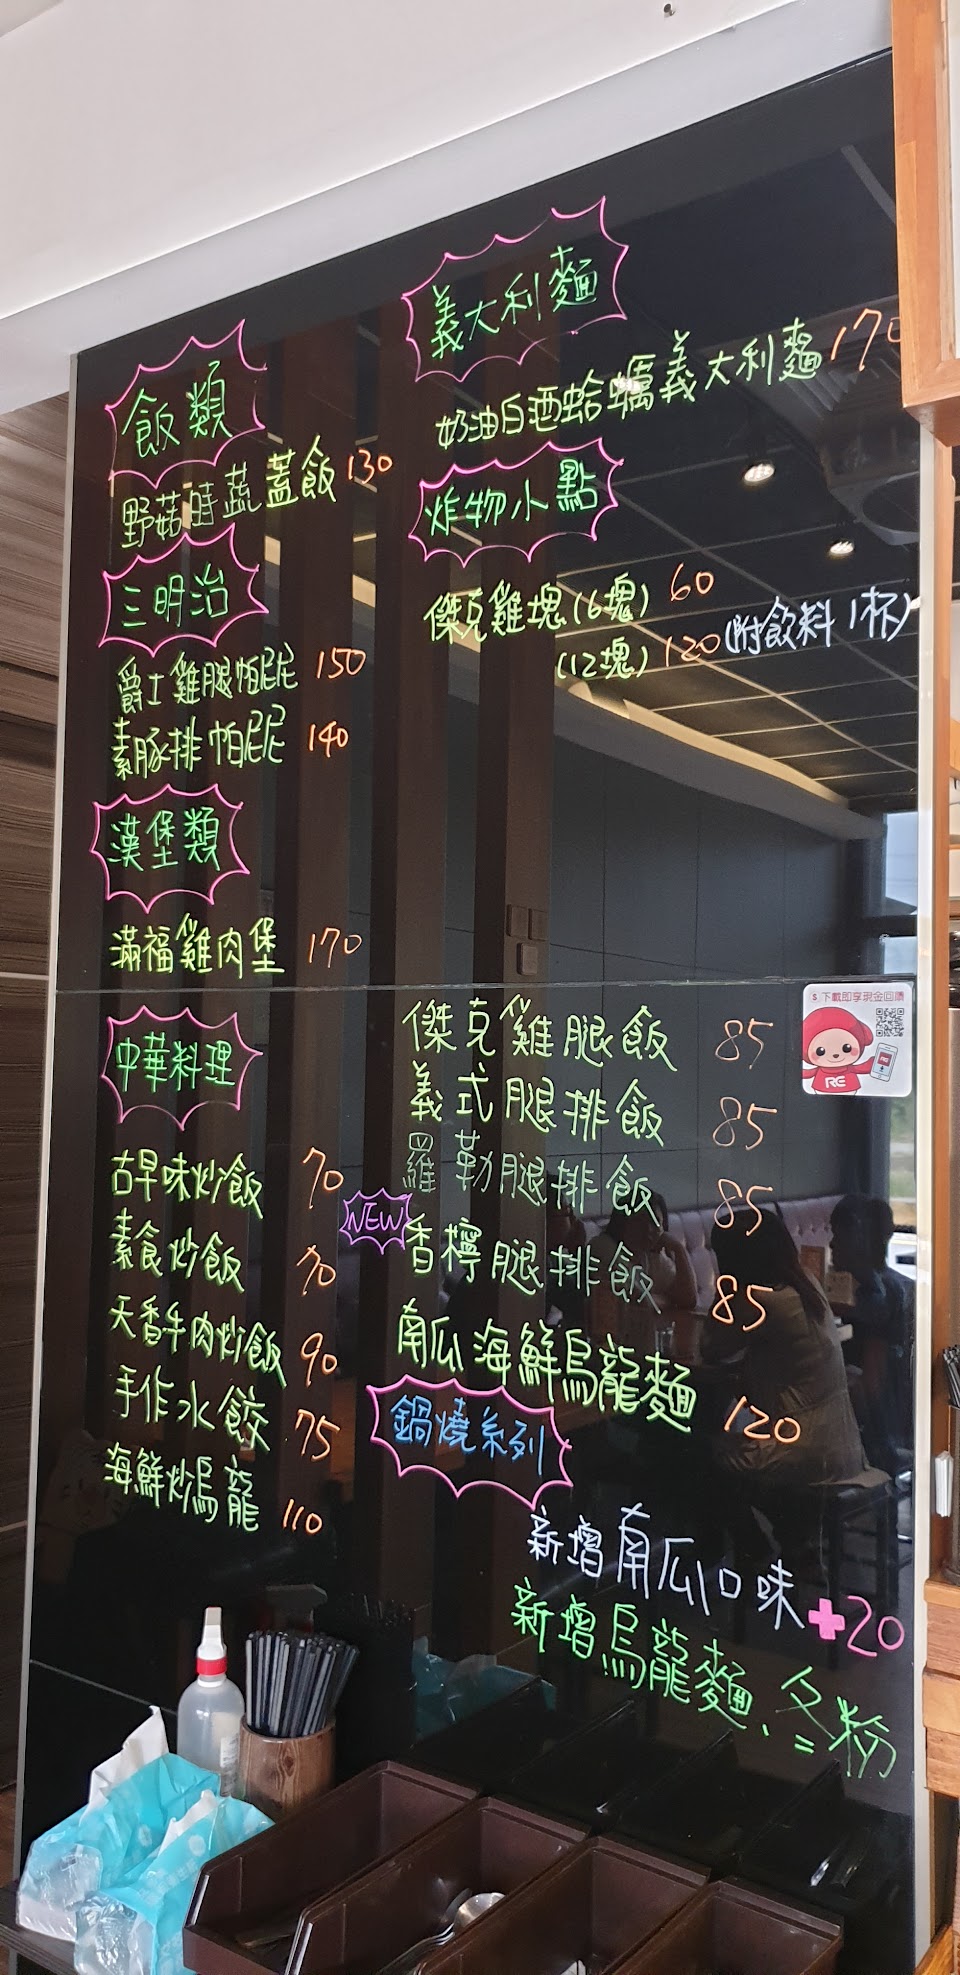 飯類
野菇時蔬蓋飯 130
三明治
爵士雞腿帕尼尼 150
素豚排帕尼尼 140
漢堡類
滿福雞肉堡 170
義大利麵
奶油白酒蛤蠣義大利麵 170
炸物小點
傑克雞塊(6塊) 60
(12塊) 120 (附飲料1杯)
中華料理
古早味炒飯 70
素食炒飯 70
天香牛肉炒飯 90
手作水餃 75
海鮮炒烏龍 110
傑克雞腿飯 85
義式腿排飯 85
羅勒腿排飯 85
NEW 香檸腿排飯 85
南瓜海鮮烏龍麵 120
鍋燒系列
新增南瓜口味+20
新增烏龍麵、冬粉
$ 下載即享現金回饋
RE